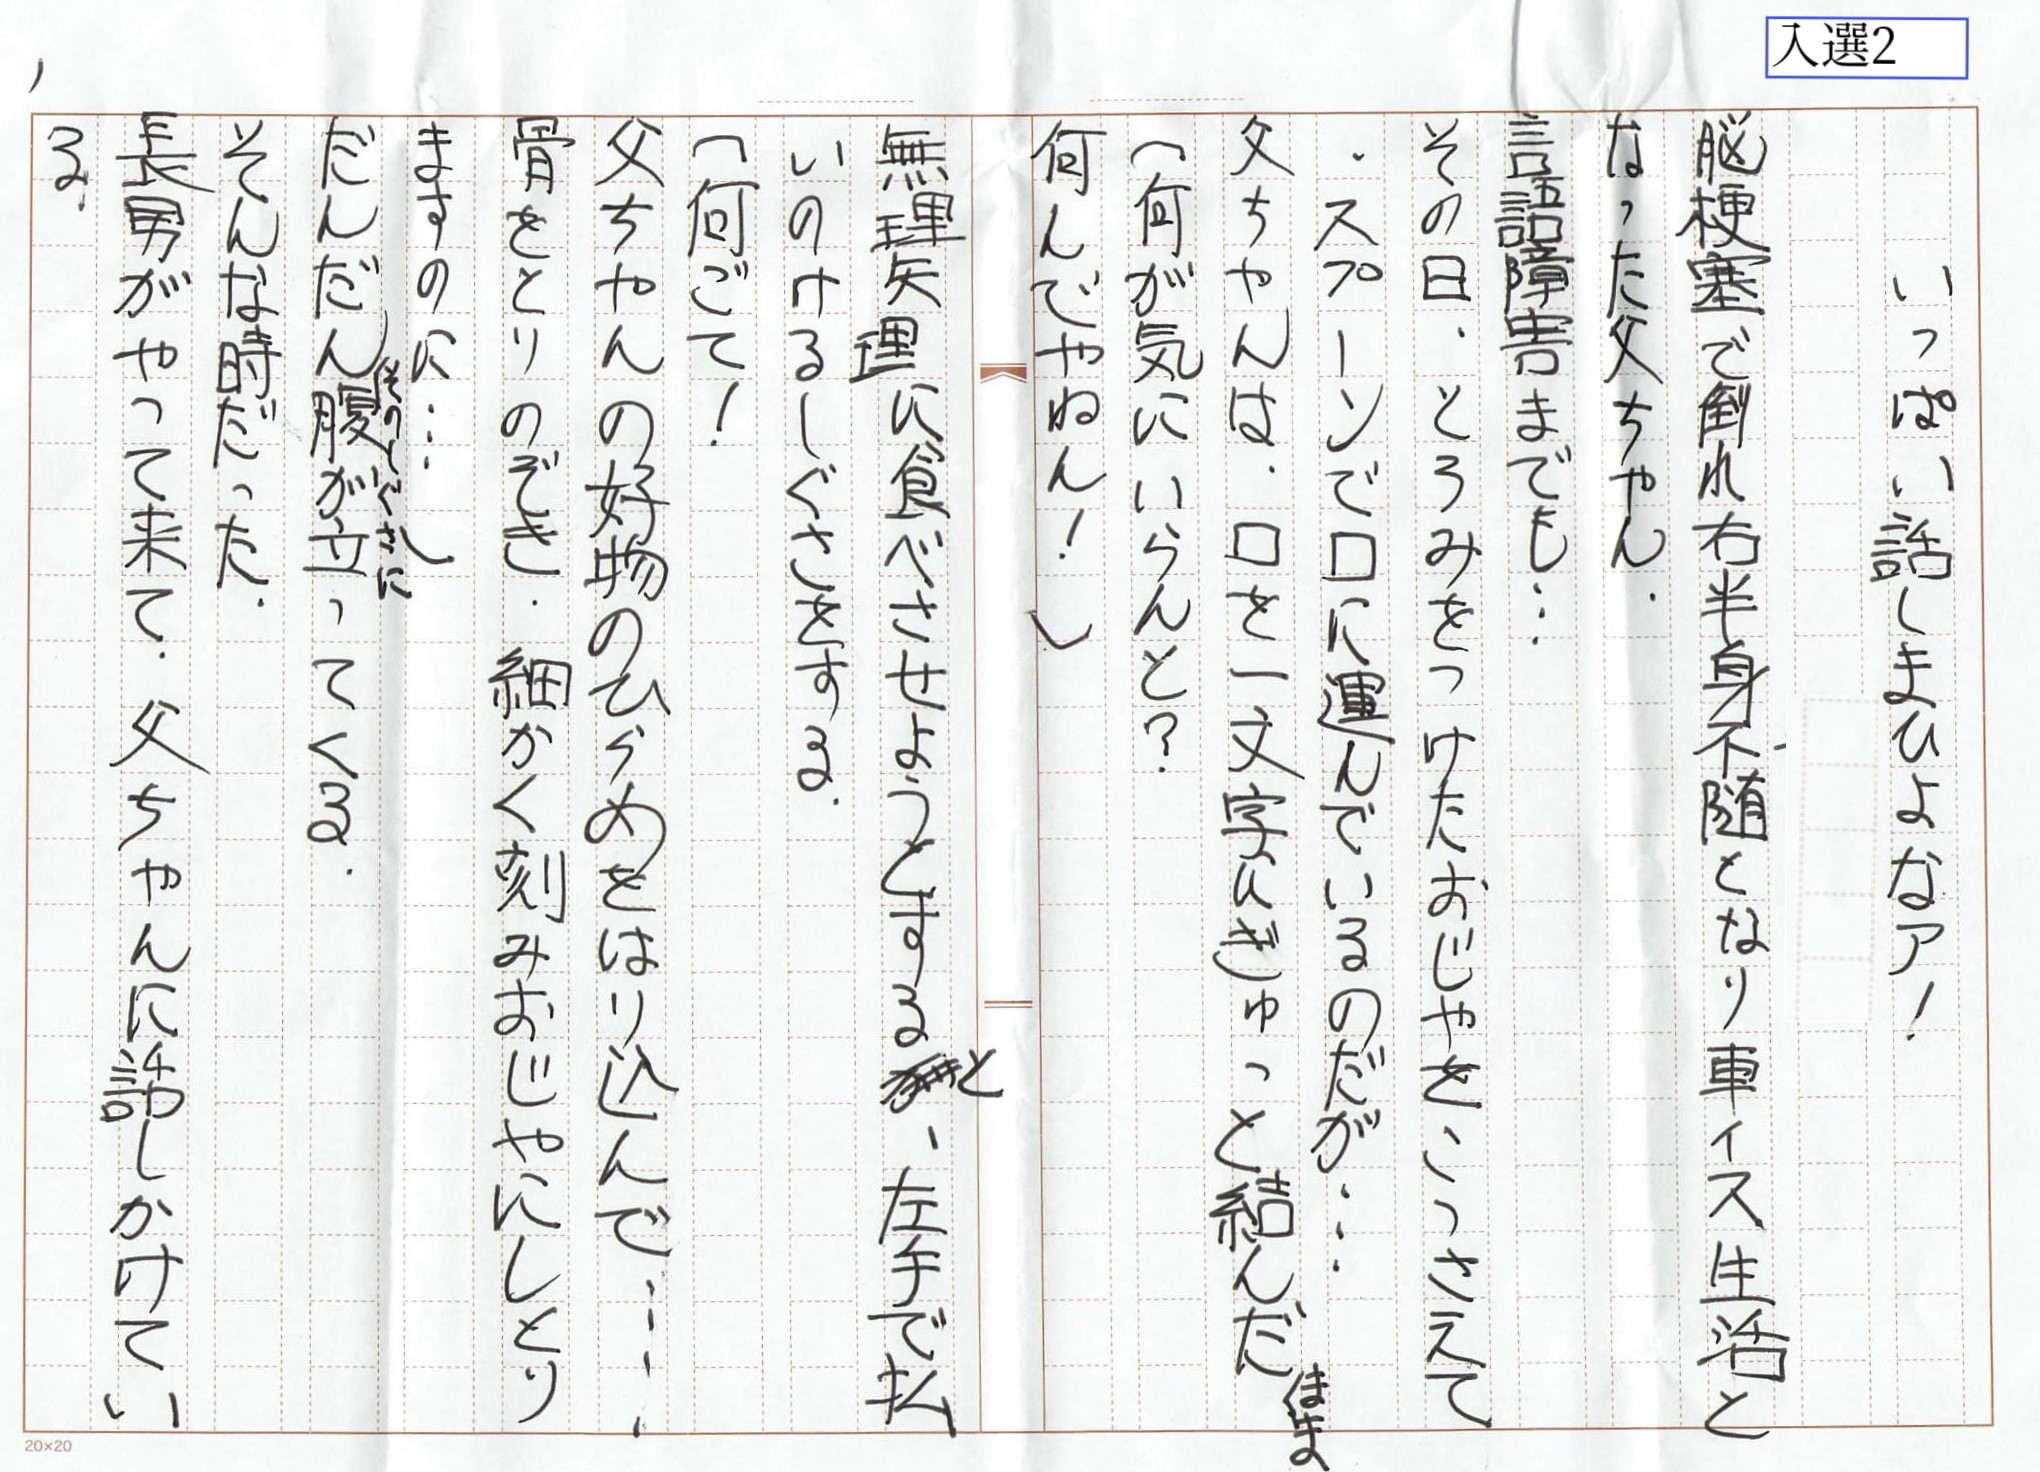 入選2
いっぱい話しまひよなア!
脳梗塞で倒れ右半身不随となり車イス生活と
なった父ちゃん.
言語障害までも…
その日.とろみをつけたおじやをこっさえて
.スプーンで口に運んでいるのだが…
父ちゃんは.口を一文字にぎゅっと結んだまま
「何が気にいらんと?
何んでやねん!」
無理矢理に食べさせようとすると、左手で払
いのけるしぐさをする.
「何ごて!
父ちゃんの好物のひらめをはり込んで……
骨をとりのぞき.細かく刻みおじやにしとり
ますのに…」
そのしぐさに
だんだん腹が立ってくる.
そんな時だった.
長男がやって来て.父ちゃんに話しかけてい
る.
20×20